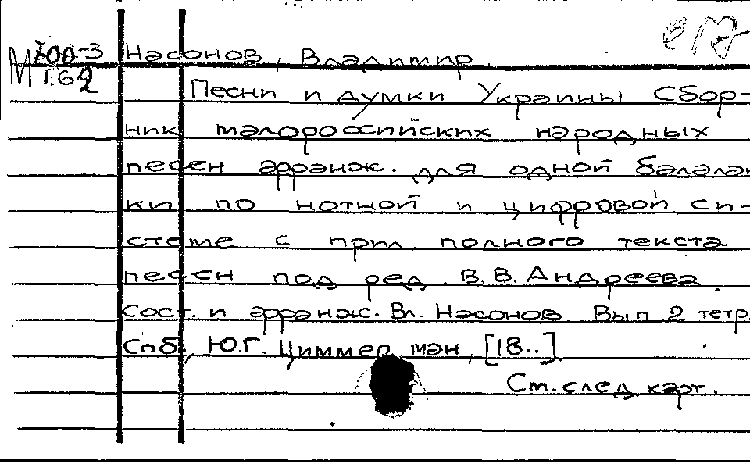 М 700-3
Г.62
Насонов, Владимир
Песни и думки Украины Сбор-
ник малороссийских народных
песен арранж. для одной балалай
ки по нотной и цифровой си-
стеме с прил. полного текста
песен под ред. В.В. Андреева.
Сост. и арранж. Вл. Насонов Вып 2 тетр.
Спб, Ю.Г. Циммерман, [18..]
См. след карт.